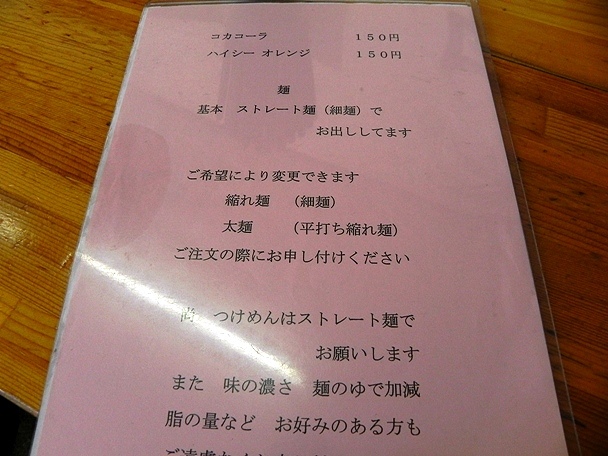 コカコーラ　　　　　１５０円
ハイシー オレンジ　　　１５０円
麺
基本　ストレート麺（細麺）で
お出ししてます
ご希望により変更できます
縮れ麺　（細麺）
太麺　　（平打ち縮れ麺）
ご注文の際にお申し付けください
尚　つけめんはストレート麺で
お願いします
また　味の濃さ　麺のゆで加減
脂の量など　お好みのある方も